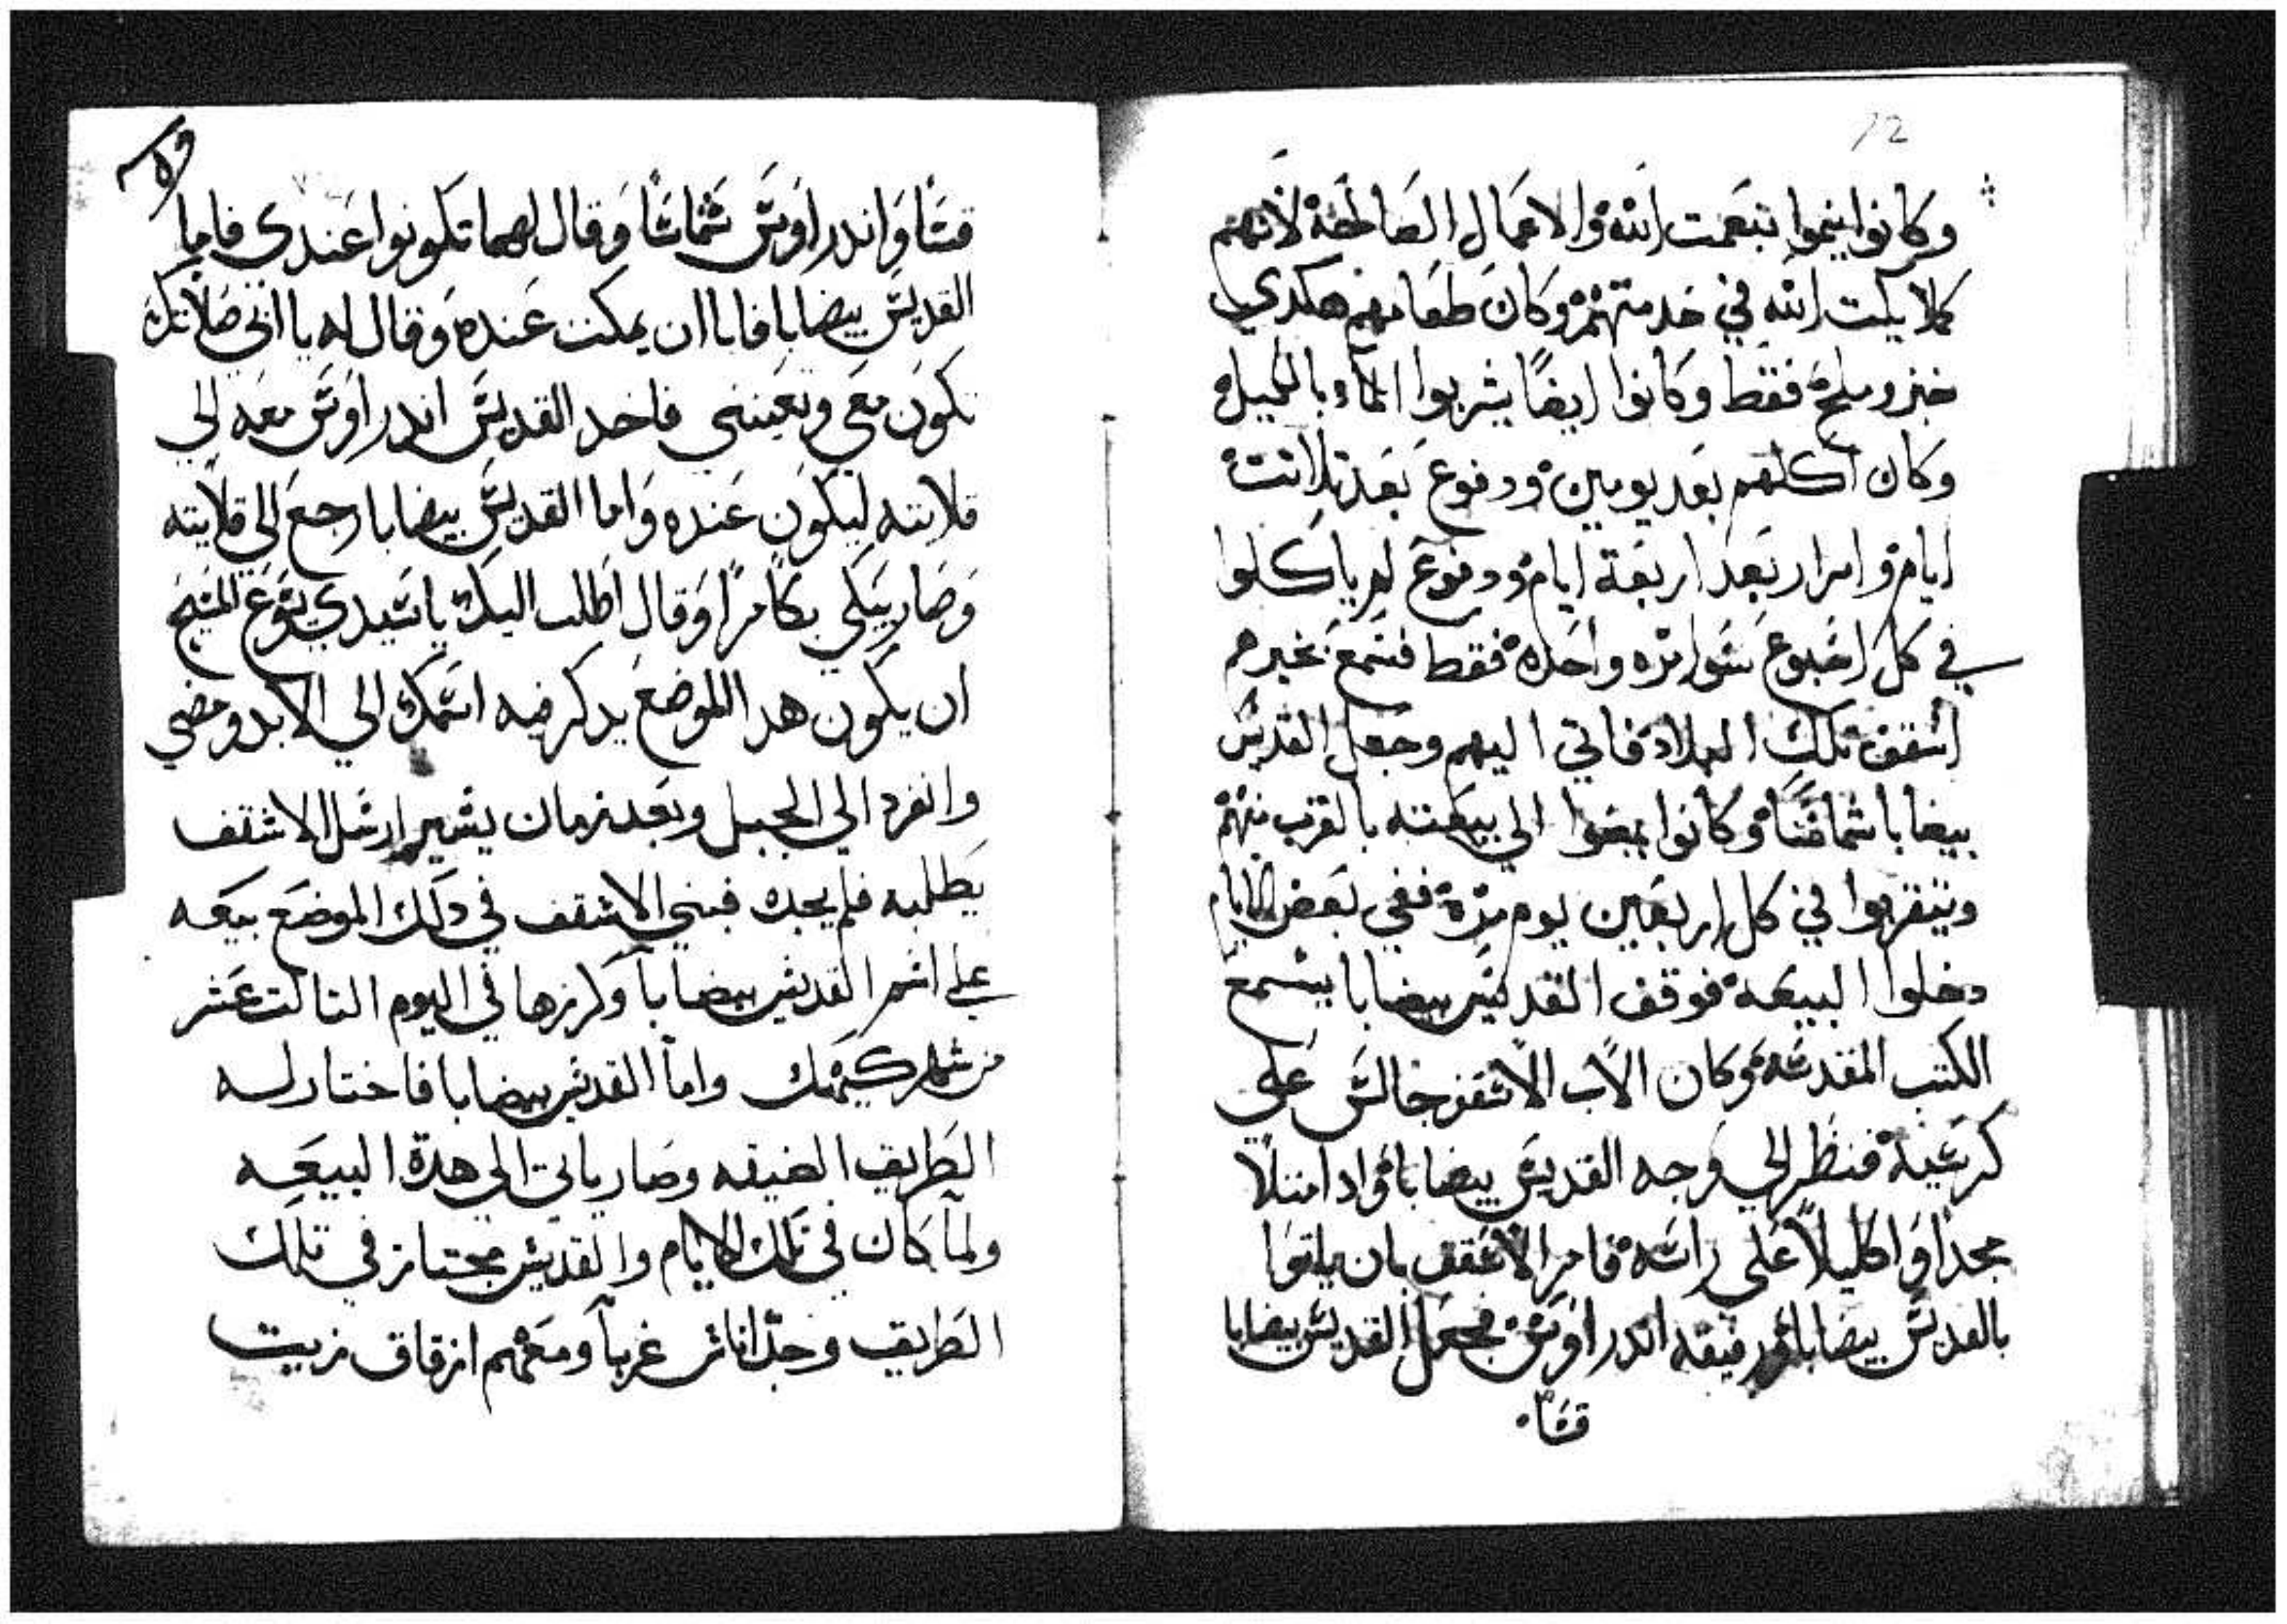 12
وكانوا ينموا بنعمت الله والاعمال الصالحة لانهم
كملا بكت الله في خدمتهم وكان طعامهم هكدي
خبز وملح فقط وكانوا ايضًا يشربوا الماء بالكيل
وكان اكلهم بعد يومين ودفوع بعد تلاتت
ايام وامرار بعد اربعة ايام ودفوع لم ياكلوا
في كل اسبوع سوا مره واحده فقط فسمع بخبرهم
اسقف تلك البلاد فاتي اليهم وجعل القديس
بيضابا شماسًا وكانوا يمضوا الي بيعته بالقرب منهم
ويتقربوا في كل اربعين يوم مرة ففي بعض الايام
دخلوا البيعة فوقف القديس بيضابا يسمع
الكتب المقدسة وكان الاب الاسقف جالس على
كرسيه فنظر الي وجه القديس بيضابا واد امتلاً
مجداً واكليلاً على راسه فامر الاسقف بان ياتوا
بالقديس بيضابا ورفيقه اندراوس فجعل القديس بيضابا
قسًا
قسًا واندراوس شماسًا وقال لهما تكونوا عندي فاما
القديس بيضابا فابا ان يمكت عنده وقال له يا ابي صلاتك
تكون معي وتعينني فاخد القديس اندراوس معه الي
قلايته ليكون عنده واما القديس بيضابا رجع الي قلايته
وصار يبكي بكا مرًا وقال اطلب اليك يا سيدي يسوع المسيح
ان يكون هدا الموضع يدكر فيه اسمك الي الابد ومضي
وانفرد الي الجبل وبعد زمان يسير ارسل الاسقف
يطلبه فلم يجده فبني الاسقف في دلك الموضع بيعه
علي اسم القديس بيضابا وكرزها في اليوم التالت عشر
من شهر كيهك واما القديس بيضابا فاختار له
الطريق الضيقه وصار ياتي الي هدة البيعه
ولما كان في تلك الايام والقديس مجتاز في تلك
الطريق وجد اناس غربآ ومعهم ازقاق زيت